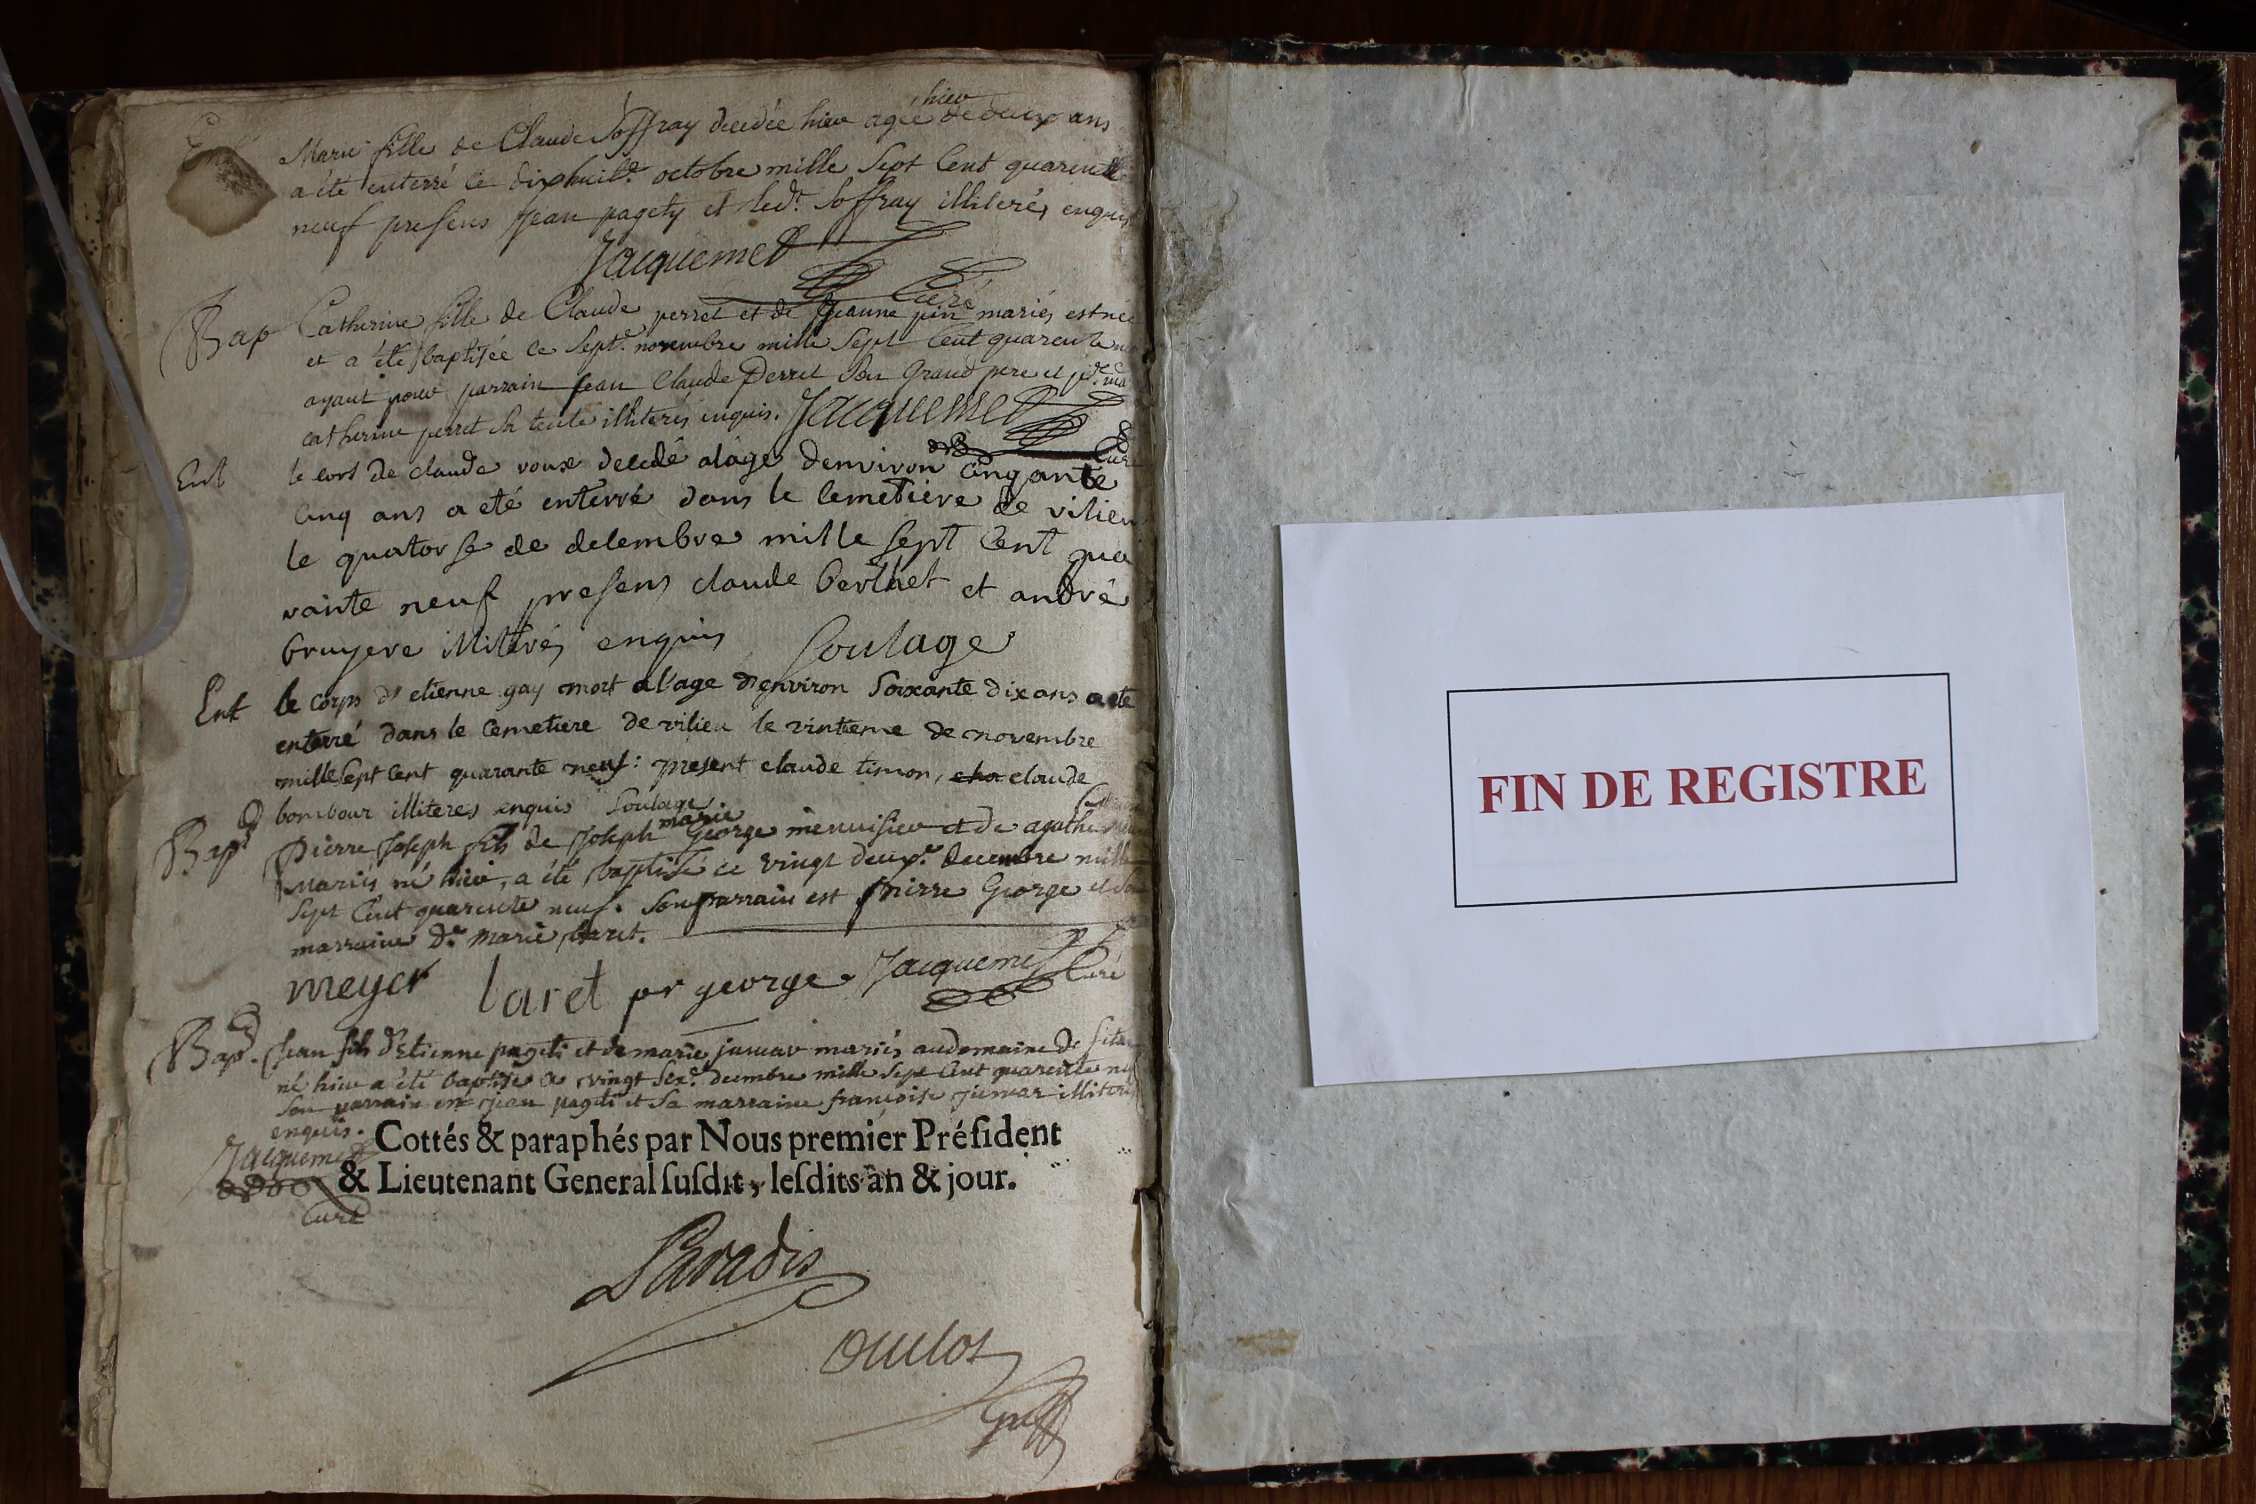 hier
Marie fille de Claude Soffray decedée hier agée de deux ans
a été enterré ce dixhuit.e octobre mille Sept Cent quarente
neuf presens Jean pagety et led.t Soffray illiterés enquis
Jacquemet
Curé
Bap Catherine fille de Claude perret et de Jeanne pin mariés est née
et a été baptisée ce Sept.e novembre mille Sept Cent quarente
ayant pour parrain Jean Claude Perret Son Grand pere et p.r
catherine perret Sa tente illiterés enquis. Jacquemet
Curé
Ent le cors de claude roux decedé alage denviron cinqante
cinq ans a eté enterré dans le cemetiere de vilieu
le quatorse de decembre mille sept Cent qua
rante neuf presens claude berthet et andré
bruyere illiterés enquis Soulage
Ent le corps d'etienne gay mort al'age d'environ Soixante dix ans a ete
enterré dans le cemetiere de vilieu le vintieme de novembre
mille Sept Cent quarante neuf : present claude timon, claude
bombour illiteres enquis Soulage
marie
Bap.t Pierre Joseph fils de Joseph George menuisier et de agathe
Mariés né hier, a été baptisé ce vingt deux.e decembre mille
Sept Cent quarente neuf. Son parrain est pierre George et Sa
marraine D.e marie baret.
meyer baret pr george Jacquemet Curé
Bap.t Jean fils d'Etienne pageti et de marie jumar mariés au domaine de
né hier a été baptisé ce vingt Six.e decembre mille Sept Cent quarente
Son parrain est jean pageti et Sa marraine francoise jumar illiterés
enquis.
Jacquemet
Curé
Cottés & paraphés par Nous premier Préſident
& Lieutenant General ſuſdit, leſdits an & jour.
Paradis
Greff
FIN DE REGISTRE